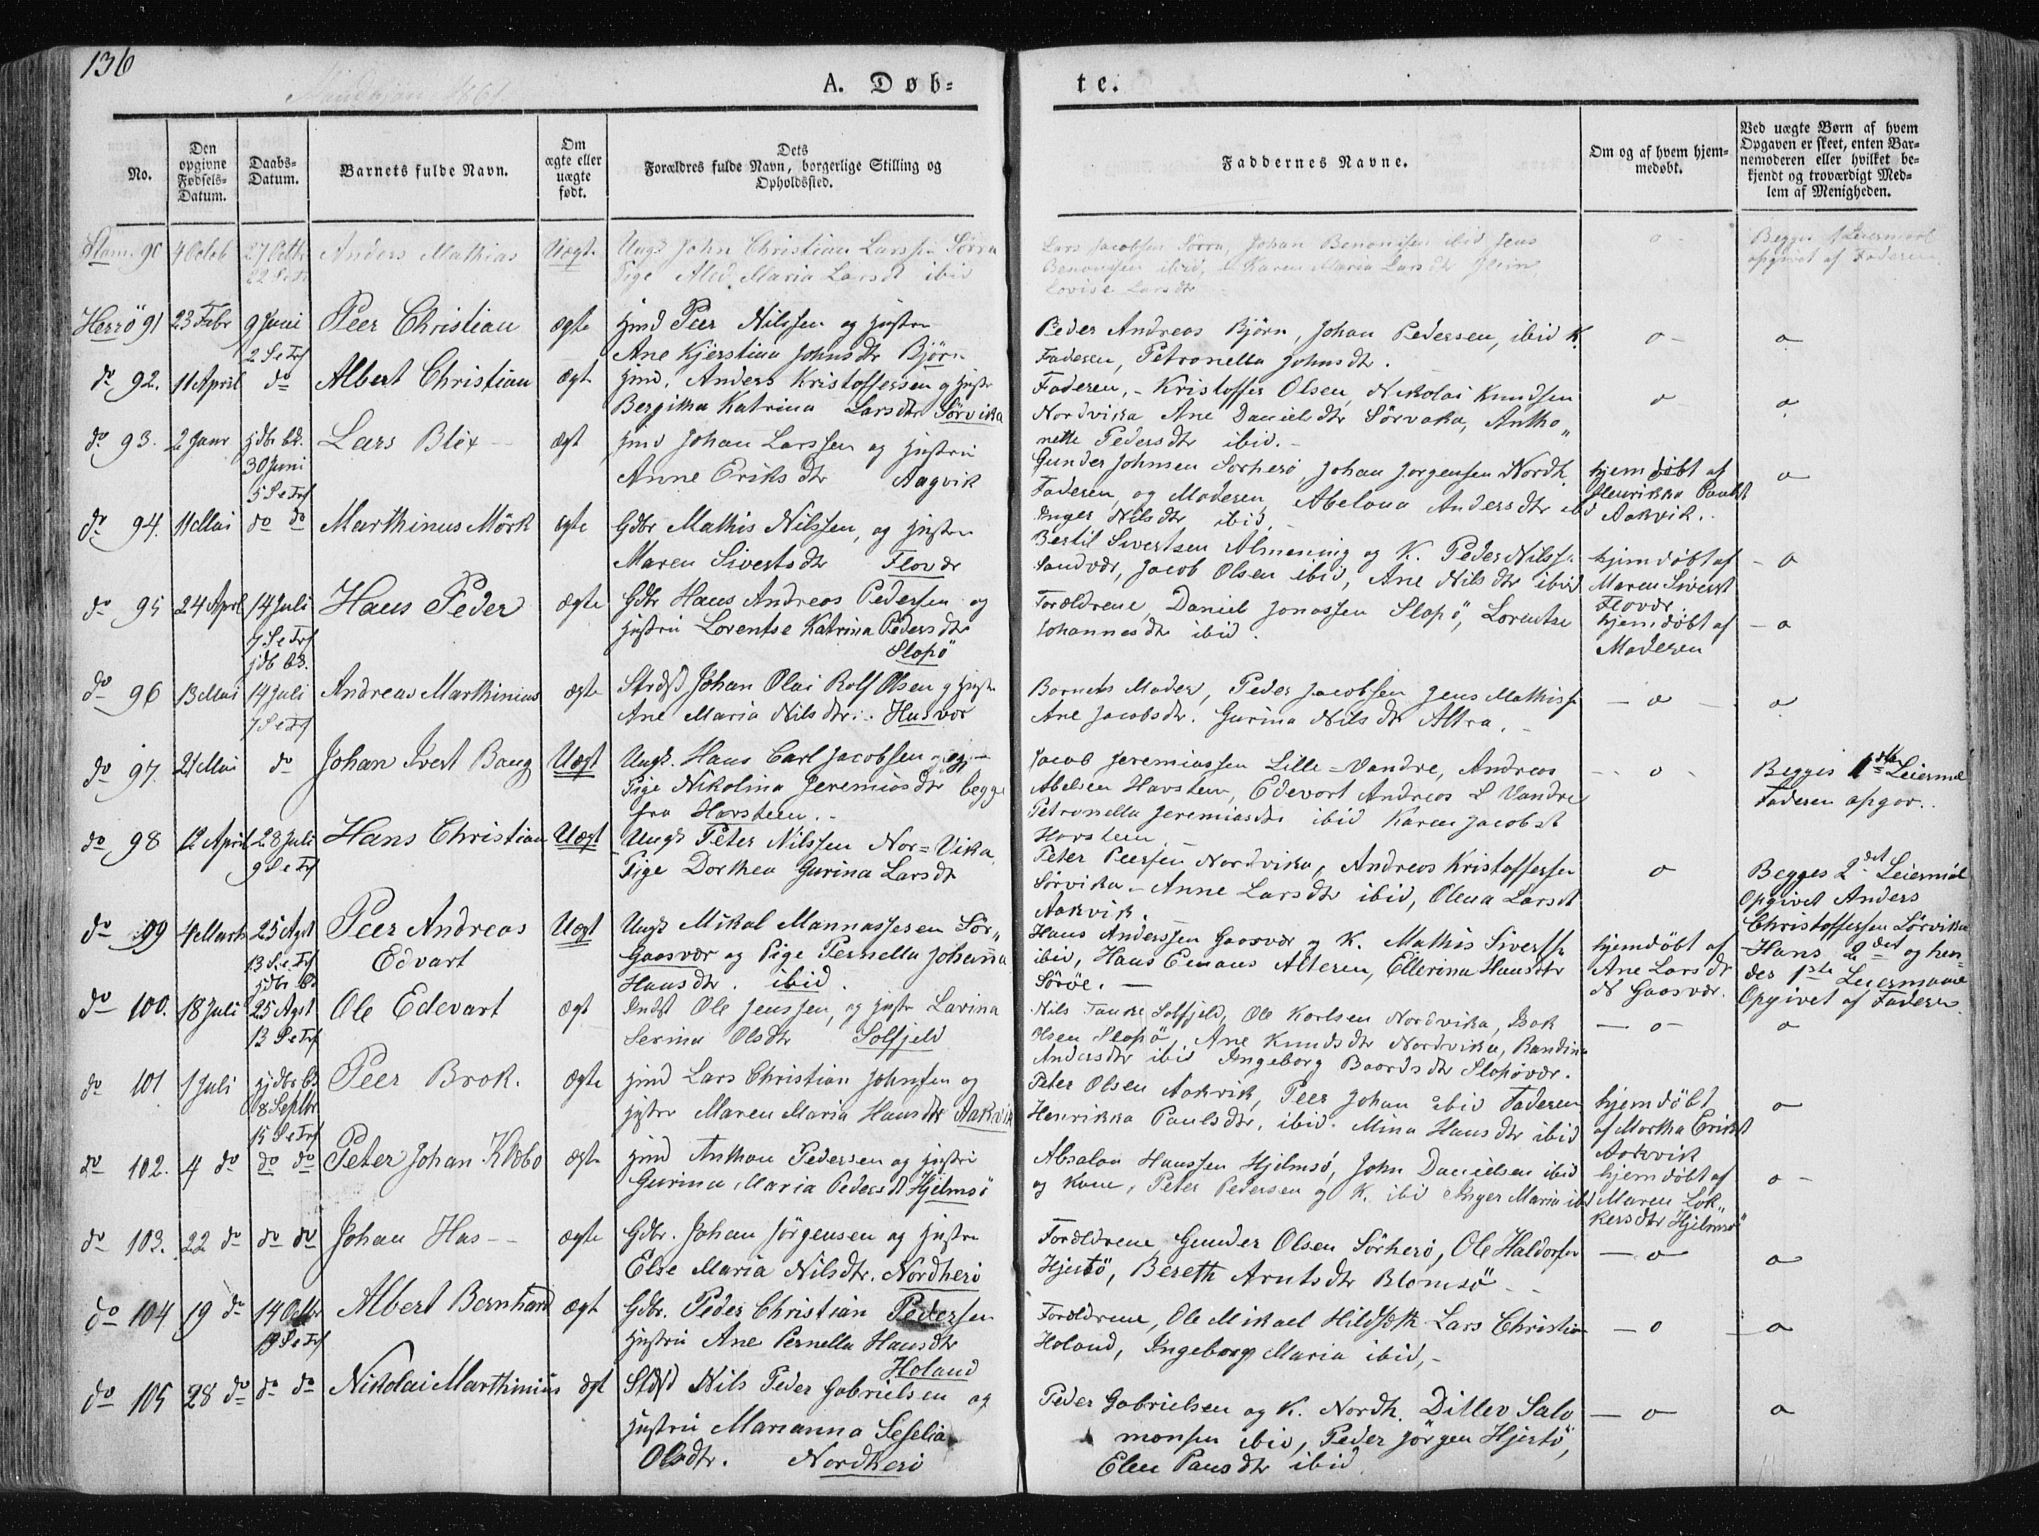 136
A. Døb-
te.
No.
Den opgivne Fødsels-Datum.
Daabs-Datum.
Barnets fulde Navn.
Om ægte eller uægte født.
Dets Forældres fulde Navn, borgerlige Stilling og Opholdssted.
Faddernes Navne.
Om og af hvem hjem-medøbt.
Ved uægte Børn af hvem Opgaven er skeet, enten Bar-nemoderen eller hvilket be-kjendt og troværdigt Med-lem af Menigheden.
90 4 Octob 27 Octbr Anders Mathias Uægte Ungk John Christian Larssen Sørra
Pige Maria Larsdt ibid
Lars Jacobsen Sørra, Johan Benonisen ibid Jens
Benonisen ibid, Karen Maria Larsdtr
Lovise Larsdtr
o
Begges Leiermaal
opgivet af Faderen
Herrö 91 23 Febr 9 Juni
2 S e Trf
Peer Christian ægte
Peer Nilssen og hustru
Ane Kjerstina Johnsdtr Björn
Peder Andreas Björn, Johan Pedersen, ibid K.
Faderen, Petronella Johnsdtr.
o o
do 92. 11 April do Albert Christian ægt
Anders Kristoffersen og hustr
Bergitha Katrina Larsdtr Sörvika
Faderen, Kristoffer Olsen, Nikolai Knudsen
Nordvika, Ane Danielsdtr Sörvaka, Antho„
nette Pedersdtr ibid.
o o
do 93. 2 Janr
30 Juni
5 S e Trf
Lars Blix ægt
Johan Larssen og hustru
Anne Eriksdtr Aagvik
Gunder Johnsen Sorherö, Johan Jorgensen Nordh.
Faderen, og Moderen, Abelona Andersdtr ibd
Inger Nilsdtr ibid.
hjemdöbt af
Henrikka Paulst
Aakvik.
o
do 94. 11 Mai do do Marthinus Mörk ægte
Gdbr Mathis Nilssen, og hustru
Maren Sivertsdtr Flovær
Bertil Sivertsen Almening og K. Peder Nilss.
Sandvær, Jacob Olsen ibid, Ane Nilsdtr ibid
hjemdöbt af
Maren Sivertst
Flovær.
o
do 95 24 April 14 Juli
7 S e Trf
Hans Peder ægte
Gdbr Hans Andreas Pedersen og
hustru Lorentse Katrina Pedersdtr
Slopö
Forældrene, Daniel Jonassen Slapö, Lorentse
Johannesdtr ibid.
hjemdöbt af
Moderen
o
do 96 13 Mai 14 Juli
7 S e Trf
Andreas Marthinius ægte
Johan Olai Rolf Olsen og hustr
Ane Maria Nilsdtr. Husvær
Barnets Moder, Peder Jacobsen Jens Mathiss
Ane Jacobsdtr. Gurina Nilsdtr Altra.
o o
do 97. 21 Mai do Johan Ivert Baug Uægt
Ungk. Hans Carl Jacobsen og
Pige Nikolina Jeremiasdtr begge
fra Havsteen.
Jacob Jeremiassen Lille-Vandre, Andreas
Abelsen Havsteen, Edevart Andreas L Vandre
Petronella Jeremiasdtr ibid Karen Jacobst
Havsteen
o
Begges 1ste Leiermal
Faderen opgav.
do 98 12 April 28 Juli
9 S e Trf
Hans Christian Uægt
Ungk Peter Nilssen Nor-Vika
Pige Dorthea Gurina Larsdtr
Peter Peersen Nordvika, Andreas Kristoffersen
Sörvika - Anne Larsdtr ibid, Olena Larsdt
Aakvik.
o
Begges 2det Leiermål
Opgivet Anders
Christoffersen Sörvika
do 99 4 Marts 25 Agst
13 S e Trf
Peer Andreas
Edvart
Uægt
Ungk Mikal Mannassesen Sör„
Gaasvær og Pige Pernella Johanna
Hansdtr. ibid.
Hans Anderssen Gaasvær og K. Mathis Sivertss
ibid, Hans Emaus Alteren, Ellerina Hansdtr
Söröe.
hjemdöbt af
Ane Larsdtr
N Gaasvær.
Hans 2det og hen-
des 1ste Leiermaal
Opgivet af Faderen
do 100. 18 Juli 25 Agst
13 S e Trf
Ole Edevart ægt
Indst Ole Jenssen, og hustr Lavina
Serina Olsdtr Solfjeld
Nils Tanke Solfjeld, Ole Karlsen Nordvika, Isak
Slapö, Ane Knudsdtr Nordvika, Randine
Andersdtr ibid Ingeborg Baardsdtr Slapövær.
o o
do 101 1 Juli
8 Septbr
15 S e Trf
Peer Brok. ægte
Lars Christian Johnsen og
hustru Maren Maria Hansdtr Aakvik
Peter Olsen Aakvik, Peer Johan ibid Faderen
Henrikka Paulsdtr, ibid. Mina Hansdtr ibid
hjemdöbt
af Martha Erikst
Aakvik
o
do 102. 4 do do do Peter Johan Klæbo ægte
Anthon Pedersen og hustru
Gurina Maria Pedersdt Hjelmsö
Absalon Hanssen Hjelmsö, John Danielsen ibid
og Kone, Peter Pedersen og K. ibid Inger Maria ibd
hjemdöbt af
Maren Lok„
kersdtr Hjelmsö
o
do 103. 22 do do do Johan Has ægte
Gdbr. Johan Jörgensen og hustru
Else Maria Nilsdtr. Nordherö
Forældrene, Gunder Olsen Sörherö, Ole Haldorsen
Hjertö, Bereth Arntsdtr Blomsö
o o
do 104 19 do 14 Octbr
Albert Bernhard ægt
Gdbr. Peder Christian Pedersen
hustru Ane Pernella Hansdtr
Holand
Forældrene, Ole Mikael Hildsæth Lars Christian
Holand, Ingeborg Maria ibid,
o o
do 105 28 do do do Nikolai Marthinius ægt
Nils Peder Gabrielsen og
hustru Marianna Seselia
Olsdtr. Nordherö
Peder Gabrielsen og K. Nordh. Ditlev Salo
monsen ibid, Peder Jörgen Hjertö,
Elen Paulsdtr ibid
o o